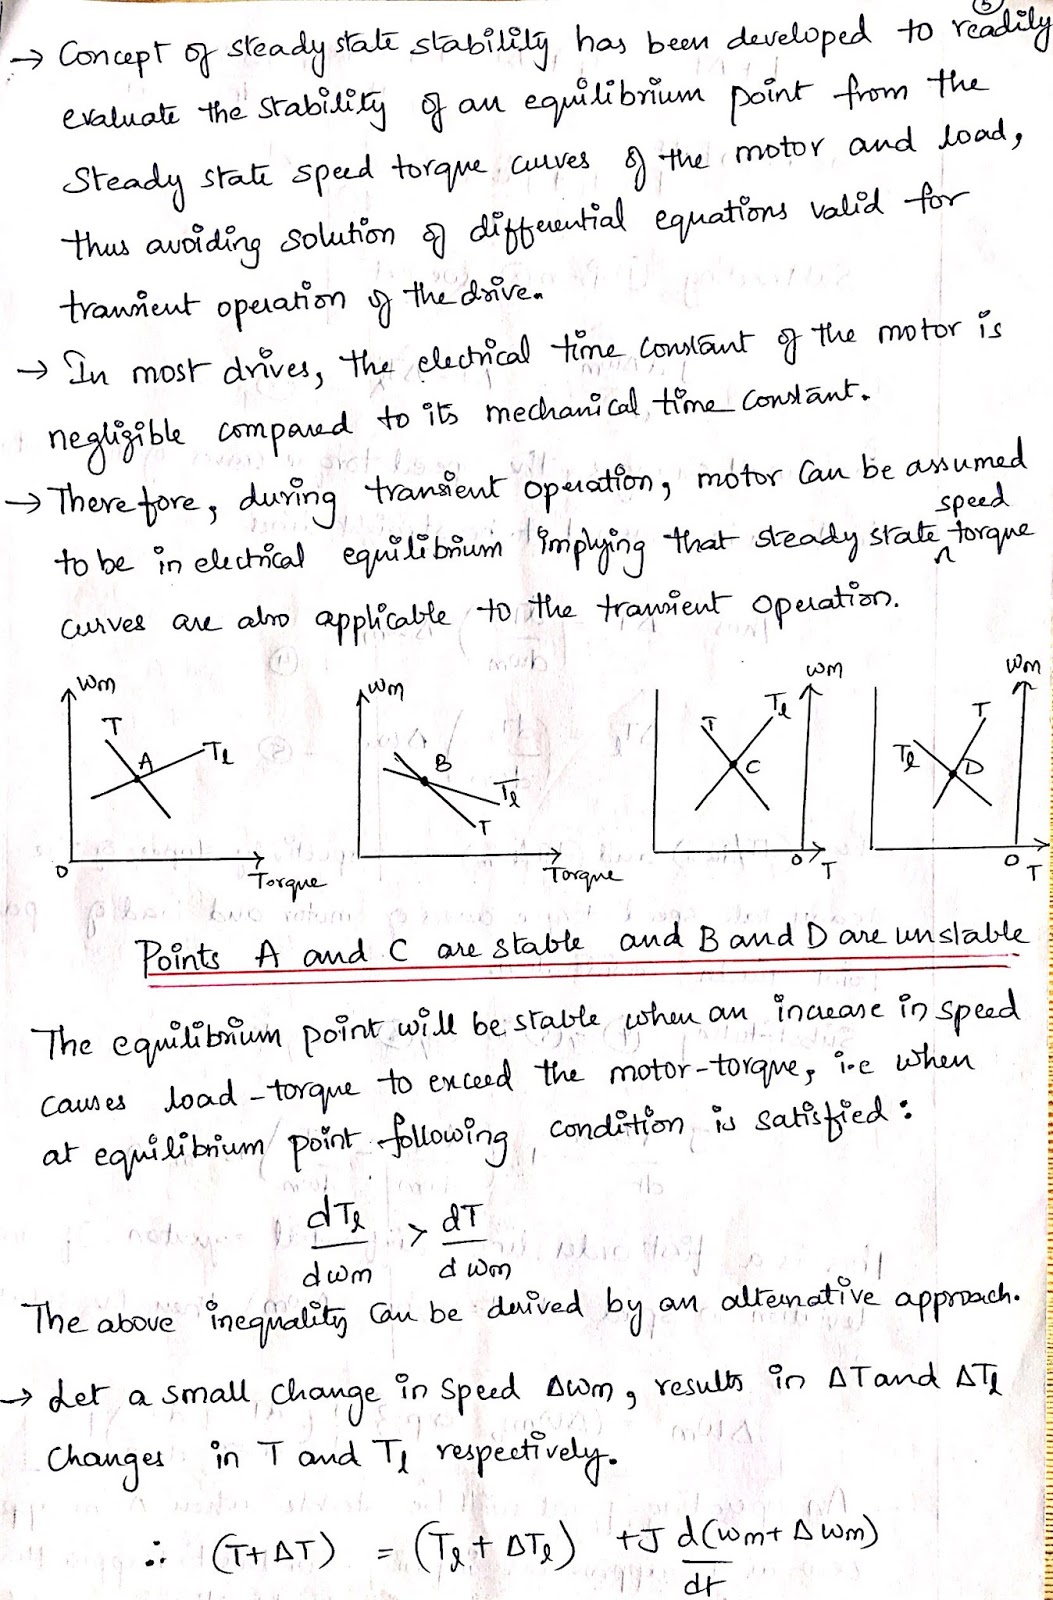 5
→ Concept of steady state stability has been developed to readily
evaluate the stability of an equilibrium point from the
Steady state speed torque curves of the motor and load,
thus avoiding solution of differential equations valid for
transient operation of the drive.
→ In most drives, the electrical time constant of the motor is
negligible compared to its mechanical time constant.
→ Therefore, during transient operation, motor can be assumed
speed
to be in electrical equilibrium implying that steady state ^ torque
curves are also applicable to the transient operation.
ωm ωm ωm ωm
T A Tl
B Tl T
T Tl C
Tl T D
0 Torque Torque 0 T 0 T
Points A and C are stable and B and D are unstable
The equilibrium point will be stable when an increase in speed
causes load-torque to exceed the motor-torque, i.e when
at equilibrium point following condition is satisfied:
dTl/dωm > dT/dωm
The above inequality can be derived by an alternative approach.
→ Let a small change in speed Δωm, results in ΔT and ΔTl
changes in T and Tl respectively.
∴ (T+ΔT) = (Tl+ΔTl) + J d(ωm+Δωm)/dt